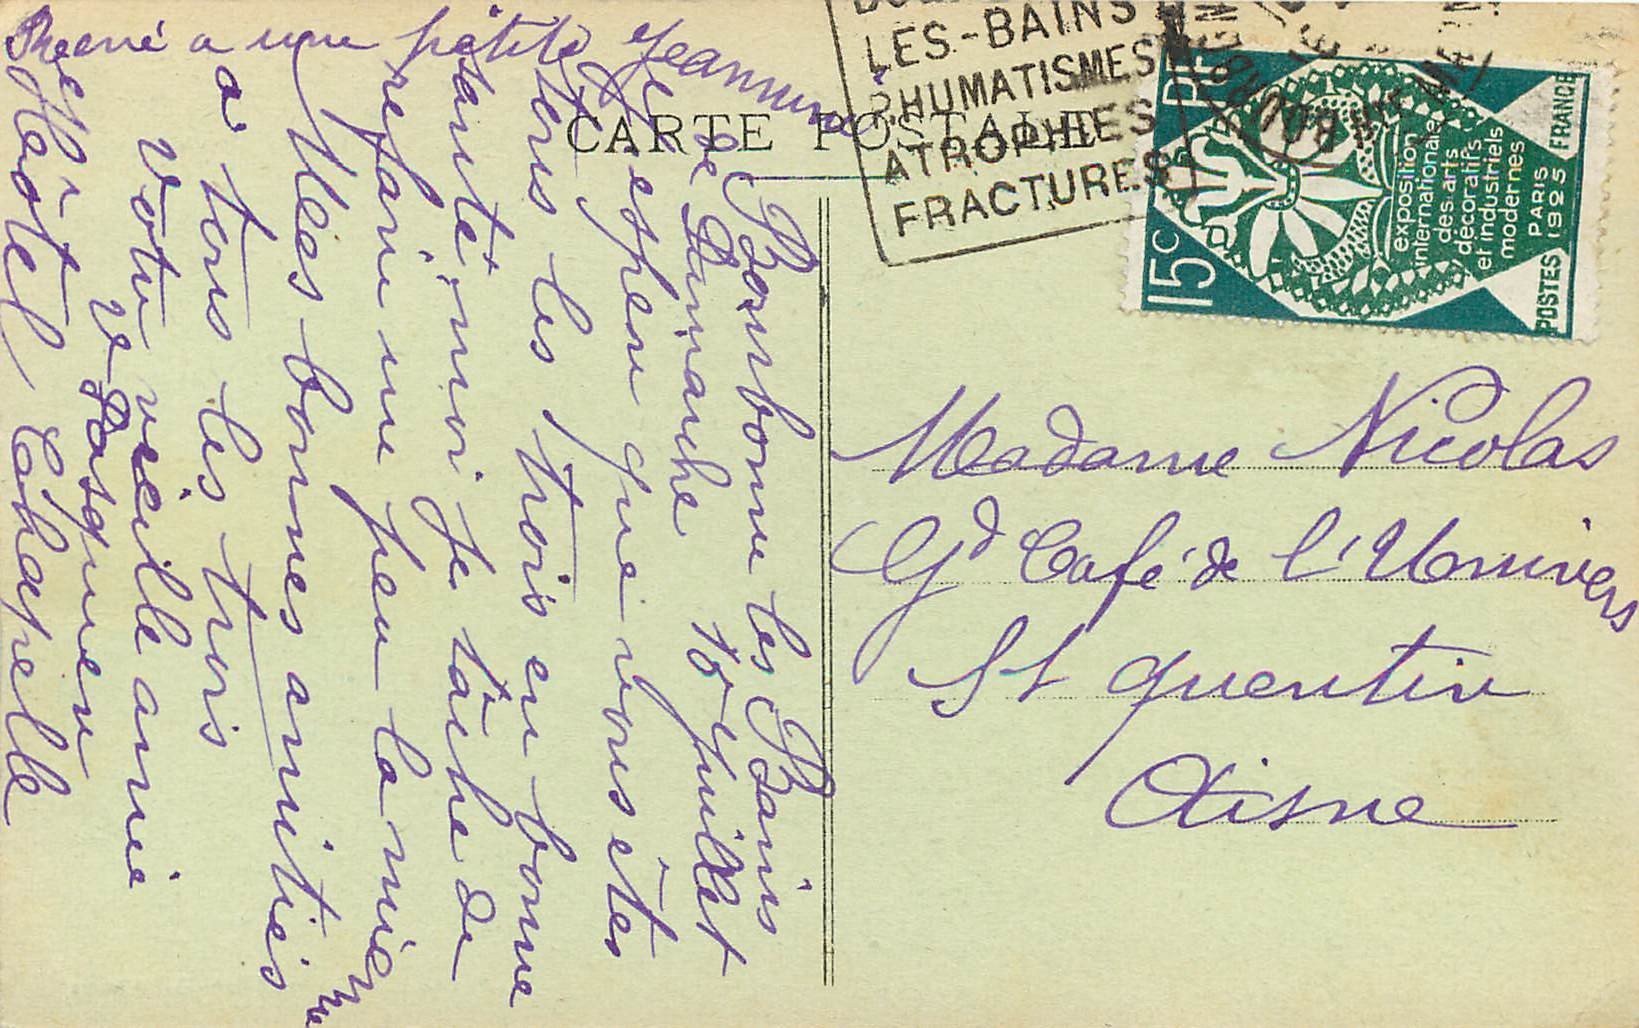 LES-BAINS
RHUMATISMES
ATROPHIES
FRACTURES
CARTE POSTALE
15c
RF
exposition
internationale
des.arts
décoratifs
et industriels
modernes
PARIS
1925
POSTES
FRANCE
Madame Nicolas
Gd Café de l'Univers
St quentin
Aisne
Bourbonne les Bains
le Dimanche 10 Juillet
J'espère que vous êtes
tous les trois en bonne
santé, moi je tâche de
refaire un peu la mienne
Mes bonnes amitiés
a tous les trois
Votre vieille amie
Ve Pasquier
Hôtel Chapelle
René a une petite Jeannine